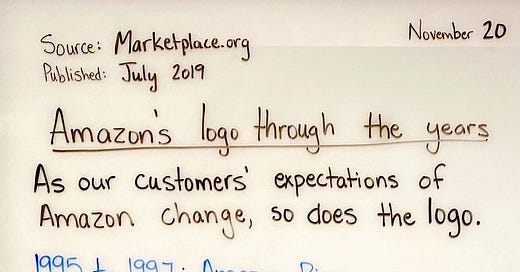 November 20
Source: Marketplace.org
Published: July 2019
Amazon's logo through the years
As our customers' expectations of
Amazon change, so does the logo.
1995 to 1997: